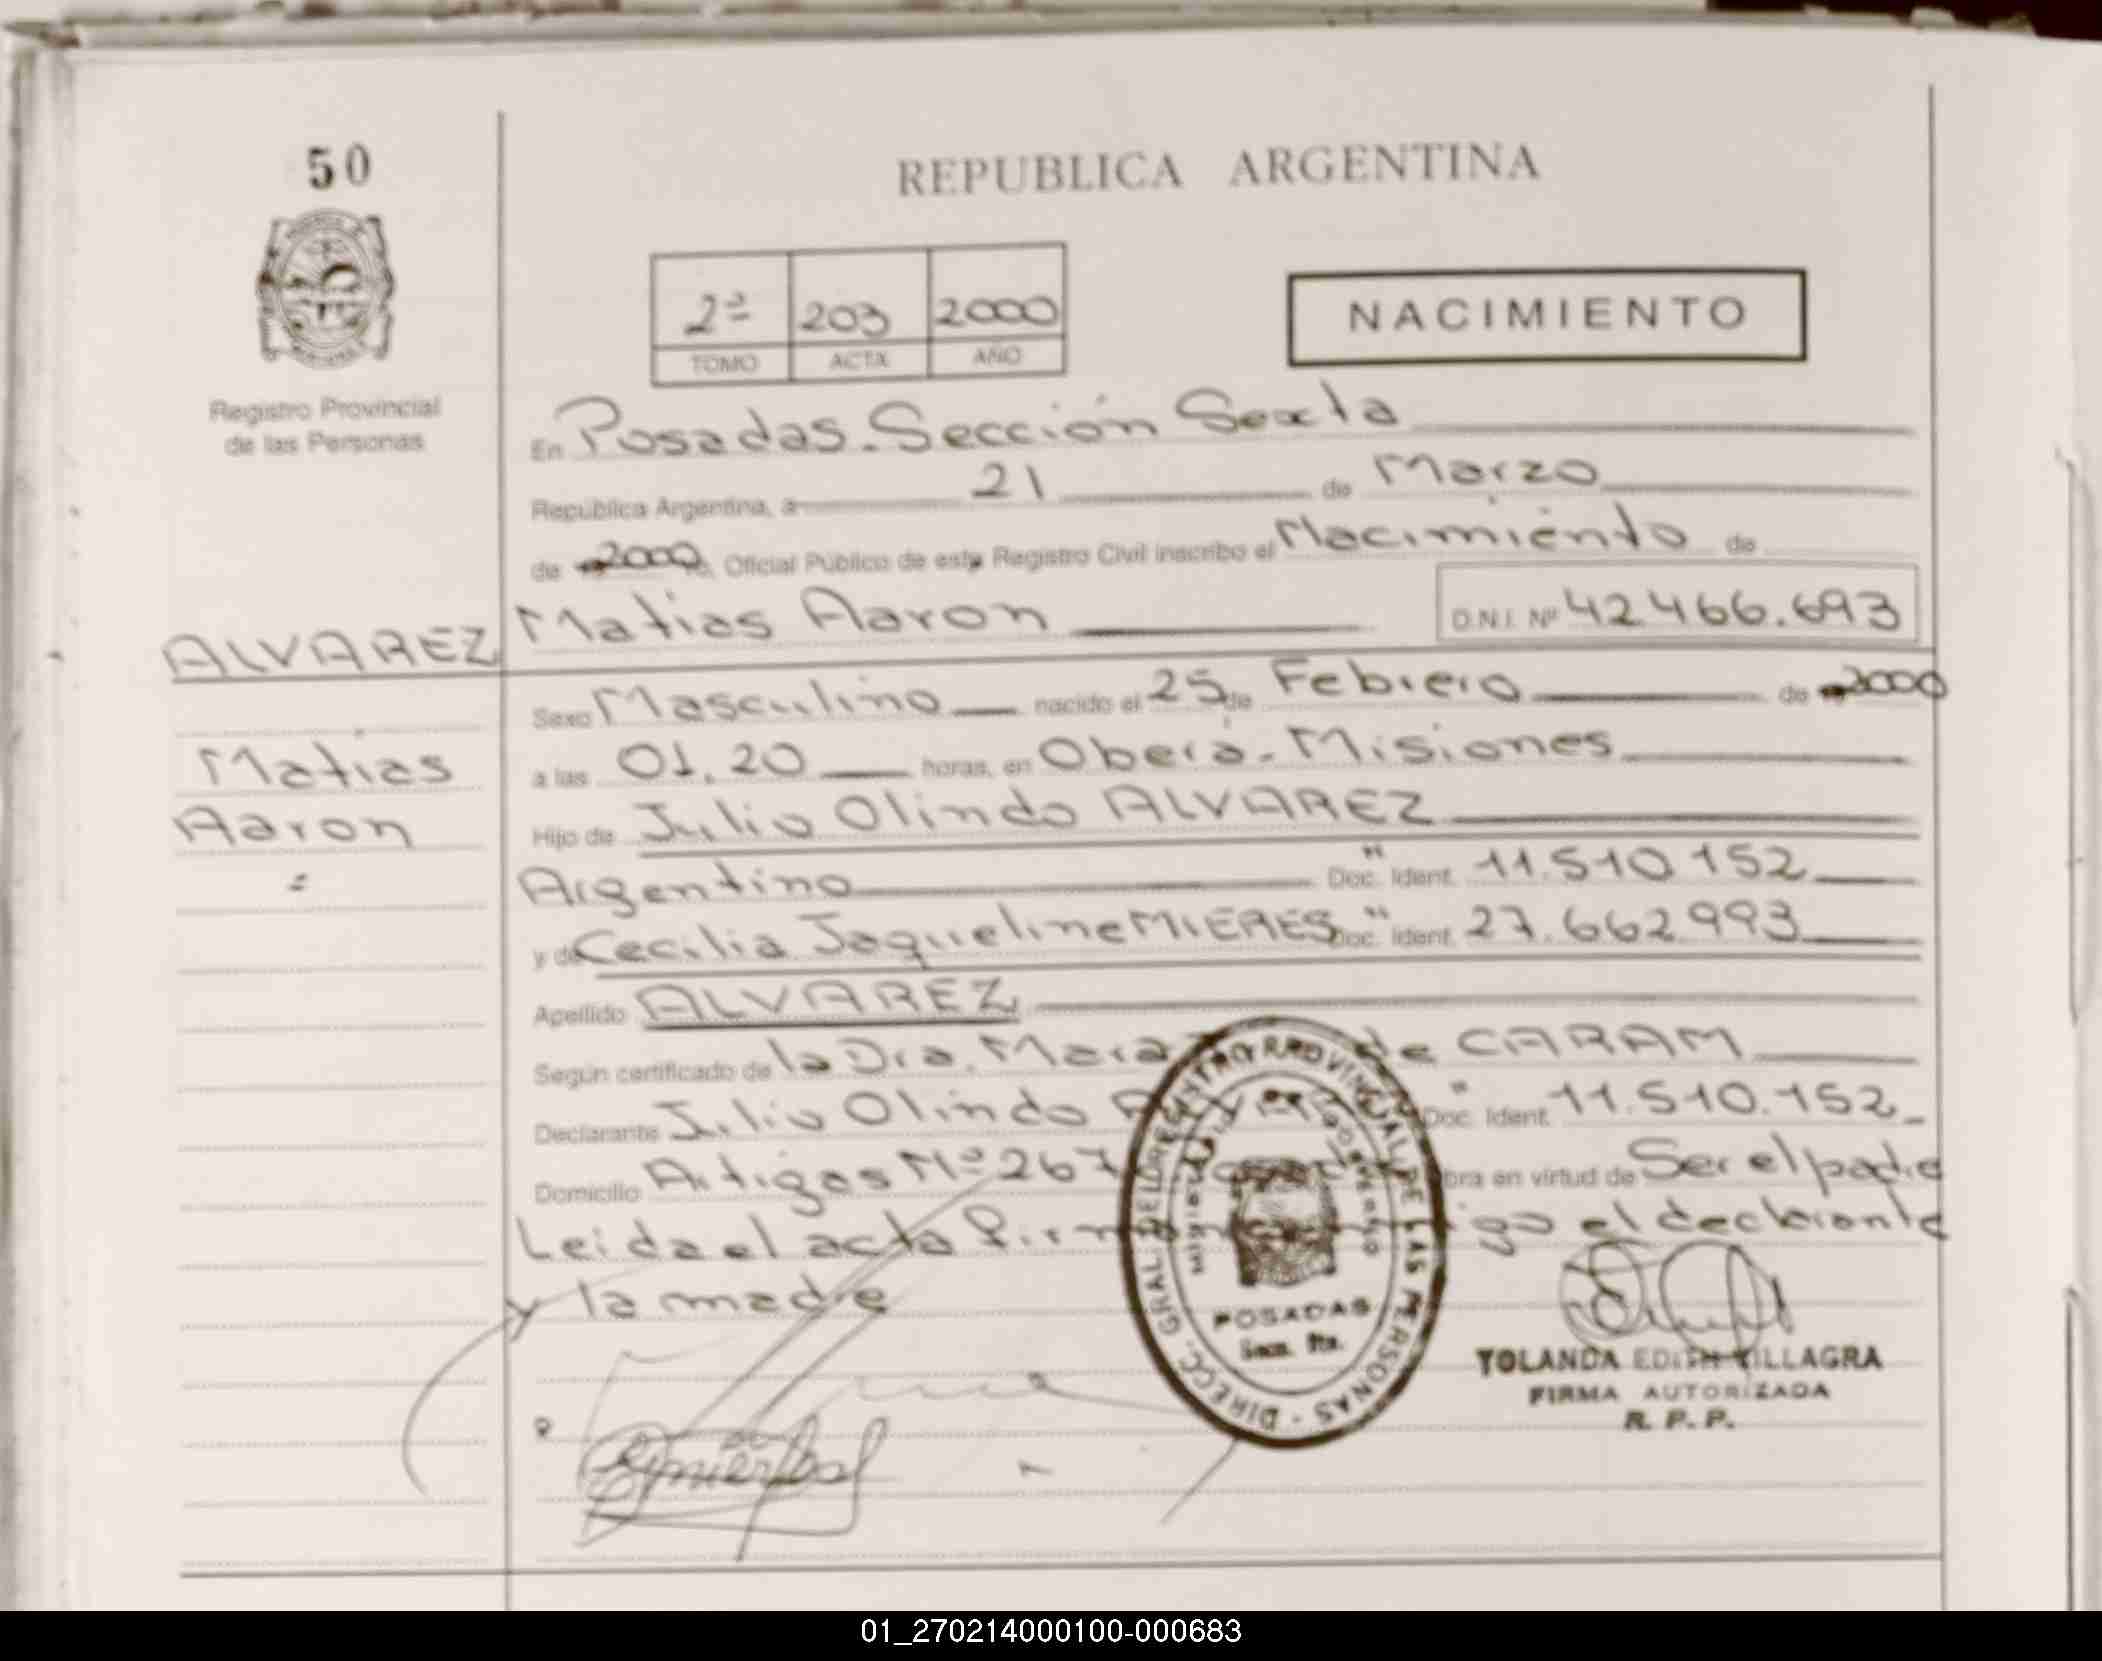 50
REPUBLICA ARGENTINA
2ª 203 2000
TOMO ACTA AÑO
NACIMIENTO
Registro Provincial
de las Personas
En Posadas. Sección Sexta
República Argentina, a 21 de Marzo
de 2000, Oficial Público de este Registro Civil inscribo el Nacimiento de
ALVAREZ Matias Aaron D.N.I. Nº 42466.693
Sexo Masculino nacido el 25 de Febrero de 2000
Matias
a las 01.20 horas, en Oberá - Misiones
Aaron
Hijo de Julio Olindo ALVAREZ
Argentino Doc. Ident. 11.510.152
y de Cecilia Jaqueline MIERES Doc. Ident. 27.662.993
Apellido ALVAREZ
Según certificado de la Dra. de CARAM
Declarante Julio Olindo Doc. Ident. 11.510.152
Domicilio Artigas Nº 267 en virtud de Ser el padre
Leida el acta el declarante
y la madre
DIRECC. GRAL. DEL REGISTRO PROVINCIAL DE LAS PERSONAS
POSADAS
Secc. 6ta.
YOLANDA EDITH VILLAGRA
FIRMA AUTORIZADA
R. P. P.
01_270214000100-000683